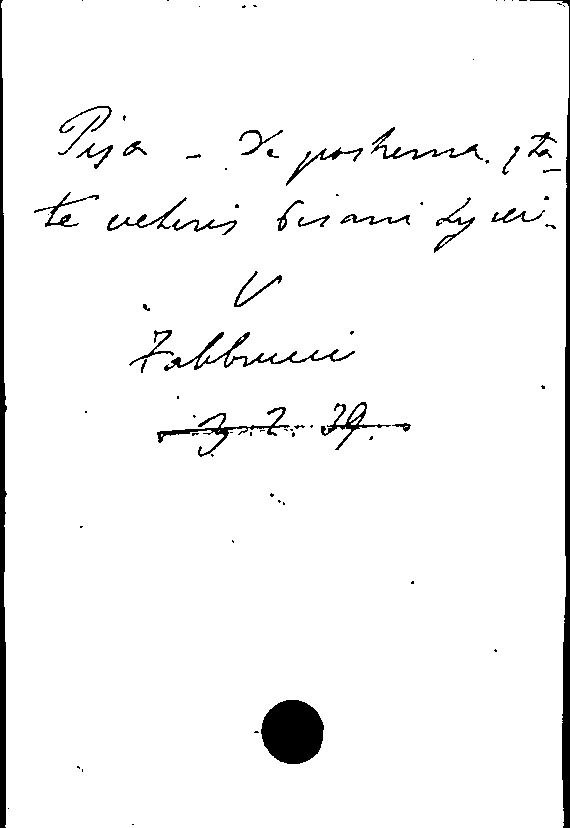 Pisa - De postrema ęta-
te veteris Pisani Lycei.
V
Fabbrucci
3. 2. 39.